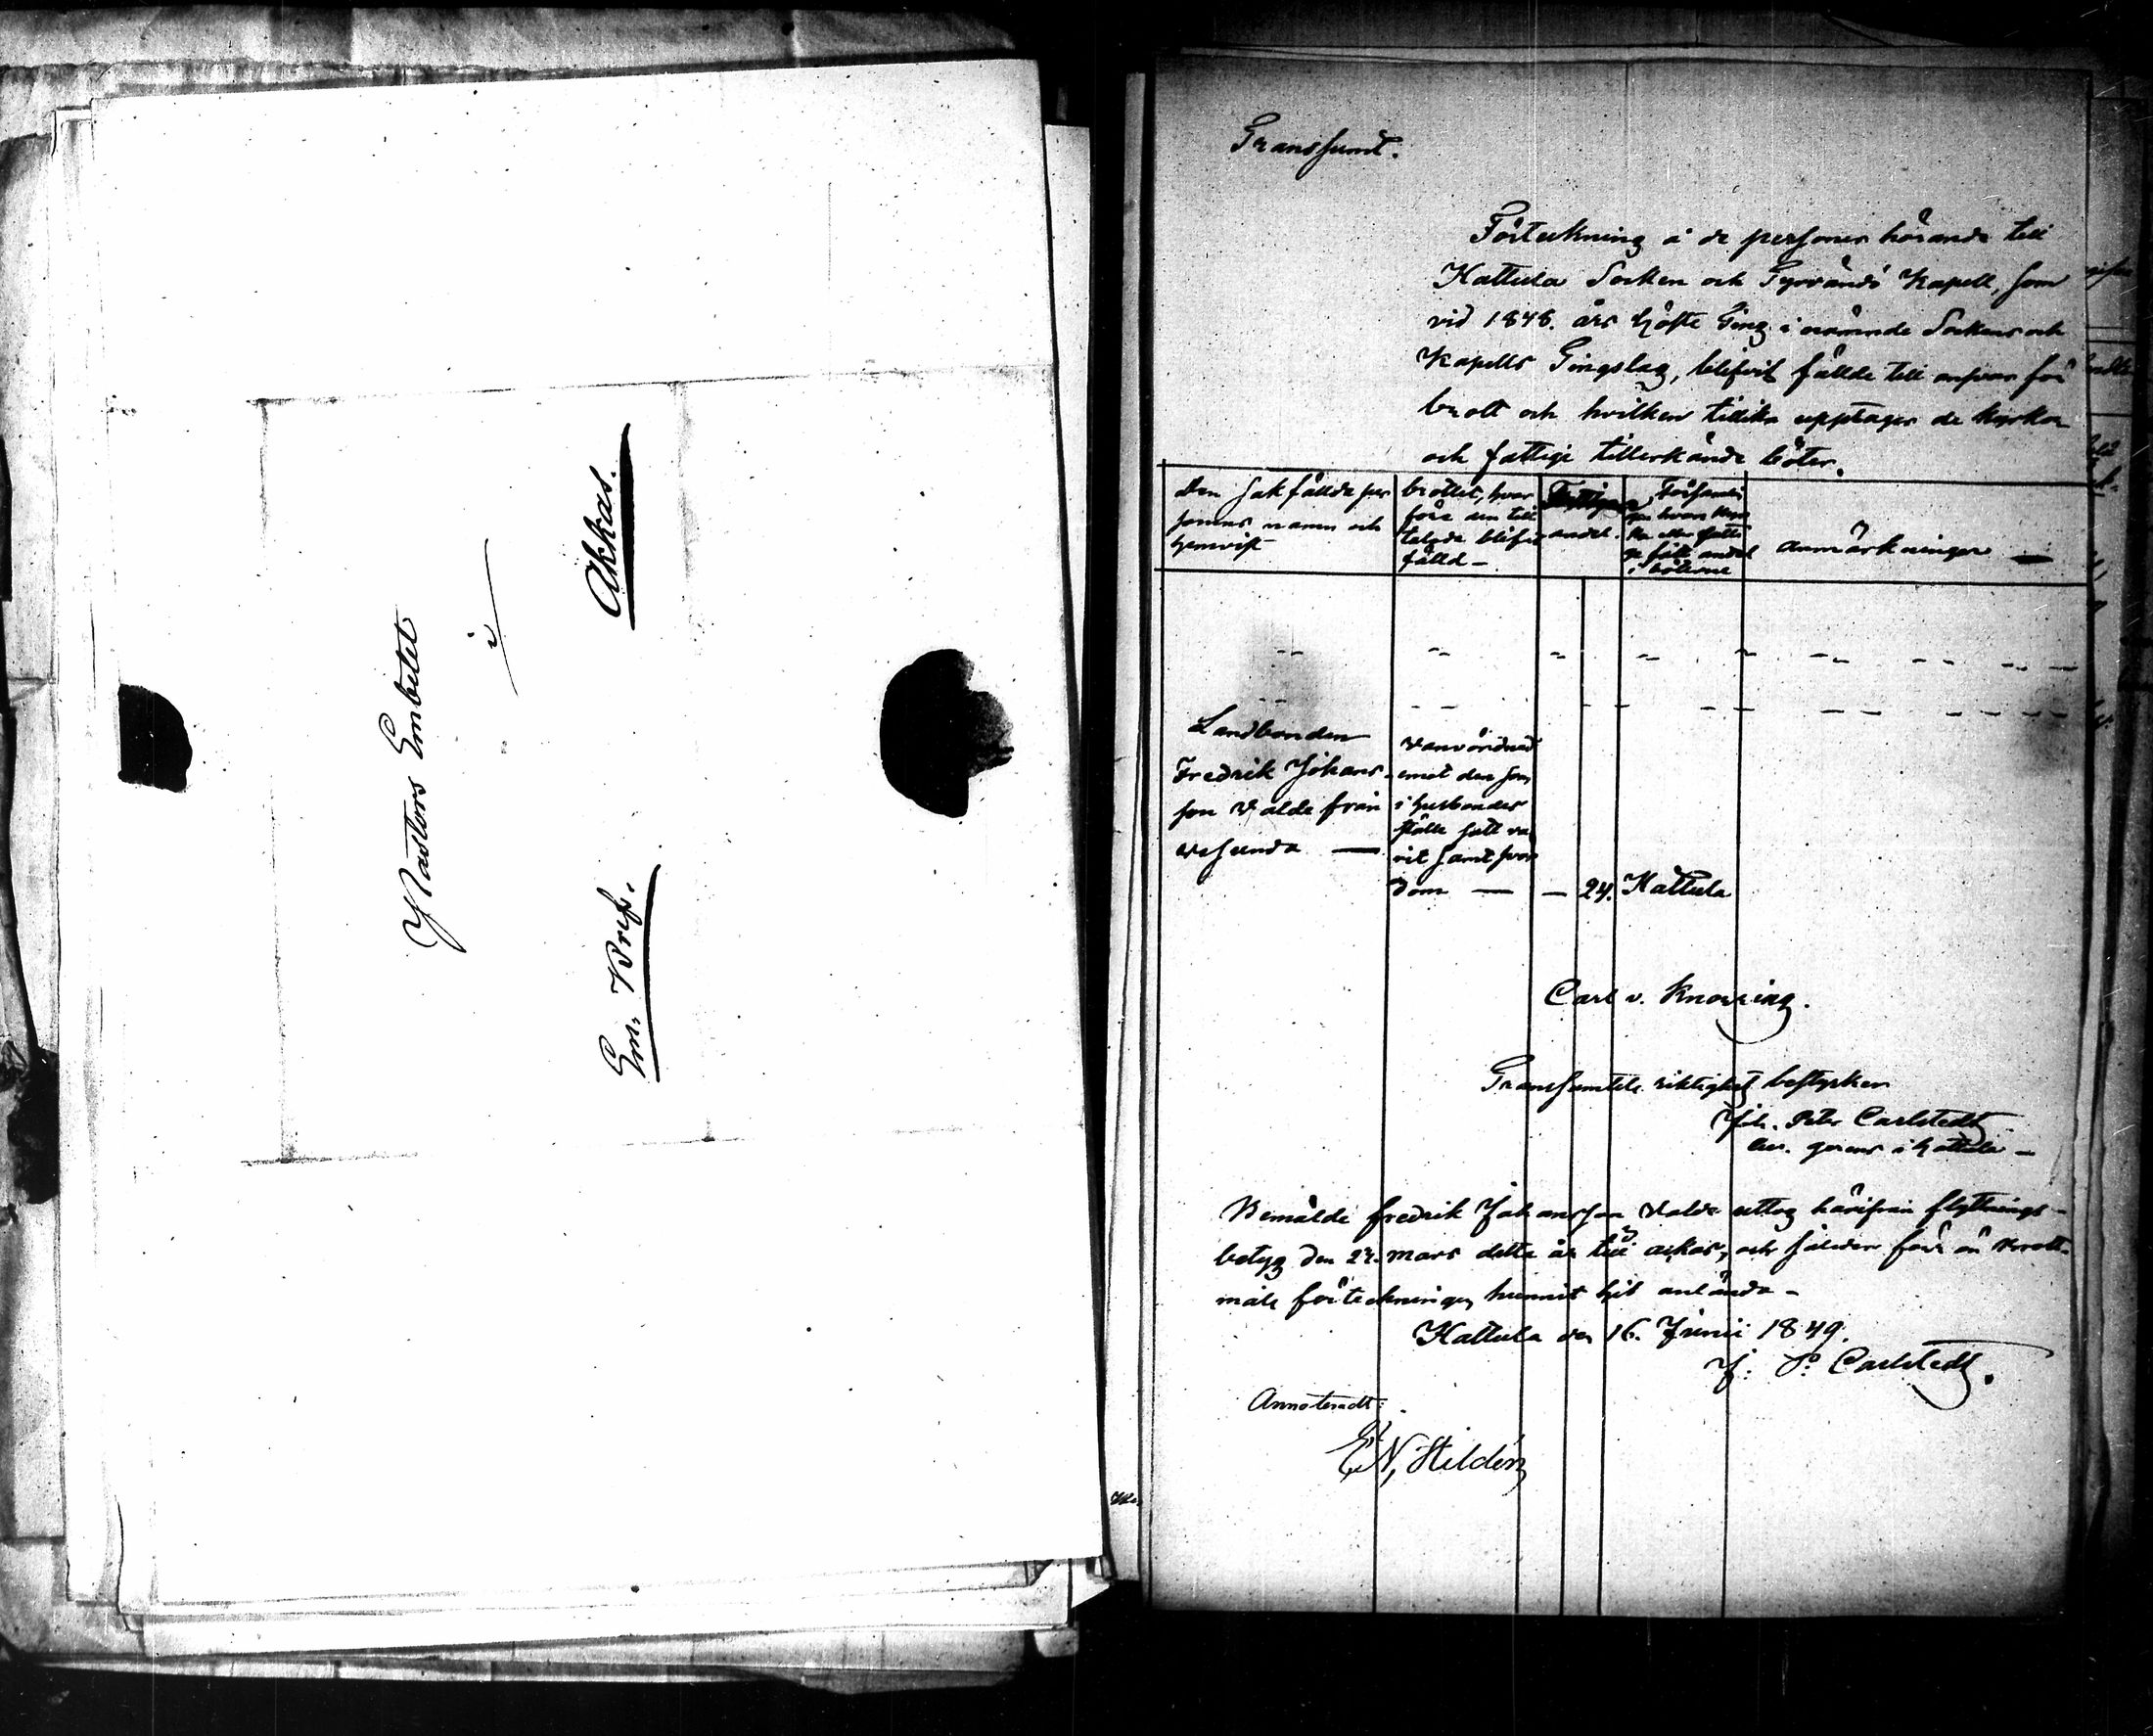 Pastors Embetet
i
Akkas.
Em. Bref.
Transsumt.
Förteckning å de personer hörande till
Hattula Socken och Tyrvändö Kapell, som
vid 1848. års höste Ting i nämnde Sockens och
Kapells Tingslag, blifvit fällde till ansvar för
brott och hvilken tillika upptager de kyrkor
och fattige tillerkände böter.
Den sakfällde per
sonens namn och
hemvist
brottet, hvar
före den till
talade blifvit
fälld -
andel.
Församlin
gen hvars kyr
ka eller fatti
ge fått andel
i böterne
Anmärkningar —
Landbonden
Fredrik Johans-
son Valde från
Wesunda —
Vanvördnad
emot den som
i husbondes
ställe satt va
rit samt svor
dom — — 24. Hattula
Carl v. Knorring.
Transsumtets riktighet bestyrker
Joh. Petr Carlstedt
i Hattula -
Bemälde Fredrik Johansson Valde uttog härifrån flyttnings-
betyg den 24. Mars detta år till Ackas, och således före än brott-
måls förteckningen hunnit hit anlända -
Hattula den 16. Junii 1849.
J: P: Carlstedt.
Annoteradt:
E. N. Hildén